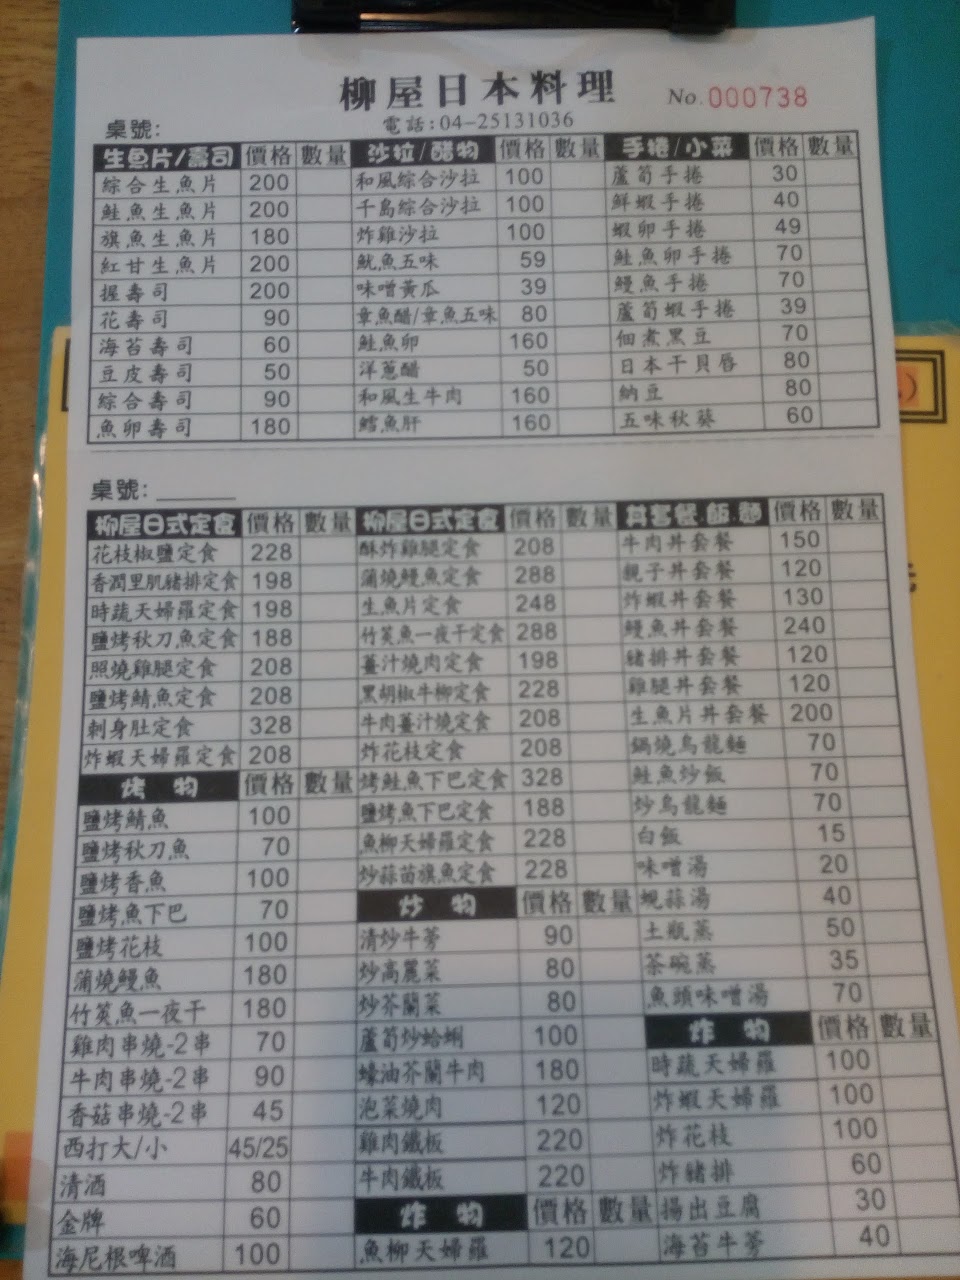 柳屋日本料理
No.000738
電話:04-25131036
桌號:
生魚片/壽司 價格 數量 沙拉/醋物 價格 數量 手捲/小菜 價格 數量
綜合生魚片 200 和風綜合沙拉 100 蘆筍手捲 30
鮭魚生魚片 200 千島綜合沙拉 100 鮮蝦手捲 40
旗魚生魚片 180 炸雞沙拉 100 蝦卵手捲 49
紅甘生魚片 200 魷魚五味 59 鮭魚卵手捲 70
握壽司 200 味噌黃瓜 39 鰻魚手捲 70
花壽司 90 章魚醋/章魚五味 80 蘆筍蝦手捲 39
海苔壽司 60 鮭魚卵 160 佃煮黑豆 70
豆皮壽司 50 洋蔥醋 50 日本干貝唇 80
綜合壽司 90 和風生牛肉 160 納豆 80
魚卵壽司 180 鱈魚肝 160 五味秋葵 60
桌號:
柳屋日式定食 價格 數量 柳屋日式定食 價格 數量 丼套餐.飯.麵 價格 數量
花枝椒鹽定食 228 酥炸雞腿定食 208 牛肉丼套餐 150
香潤里肌豬排定食 198 蒲燒鰻魚定食 288 親子丼套餐 120
時蔬天婦羅定食 198 生魚片定食 248 炸蝦丼套餐 130
鹽烤秋刀魚定食 188 竹筴魚一夜干定食 288 鰻魚丼套餐 240
照燒雞腿定食 208 薑汁燒肉定食 198 豬排丼套餐 120
鹽烤鯖魚定食 208 黑胡椒牛柳定食 228 雞腿丼套餐 120
刺身肚定食 328 牛肉薑汁燒定食 208 生魚片丼套餐 200
炸蝦天婦羅定食 208 炸花枝定食 208 鍋燒烏龍麵 70
烤物 價格 數量 烤鮭魚下巴定食 328 鮭魚炒飯 70
鹽烤鯖魚 100 鹽烤魚下巴定食 188 炒烏龍麵 70
鹽烤秋刀魚 70 魚柳天婦羅定食 228 白飯 15
鹽烤香魚 100 炒蒜苗旗魚定食 228 味噌湯 20
鹽烤魚下巴 70 炒物 價格 數量 蜆蒜湯 40
鹽烤花枝 100 清炒牛蒡 90 土瓶蒸 50
蒲燒鰻魚 180 炒高麗菜 80 茶碗蒸 35
竹筴魚一夜干 180 炒芥蘭菜 80 魚頭味噌湯 70
雞肉串燒-2串 70 蘆筍炒蛤蜊 100 炸物 價格 數量
牛肉串燒-2串 90 蠔油芥蘭牛肉 180 時蔬天婦羅 100
香菇串燒-2串 45 泡菜燒肉 120 炸蝦天婦羅 100
西打大/小 45/25 雞肉鐵板 220 炸花枝 100
清酒 80 牛肉鐵板 220 炸豬排 60
金牌 60 炸物 價格 數量 揚出豆腐 30
海尼根啤酒 100 魚柳天婦羅 120 海苔牛蒡 40